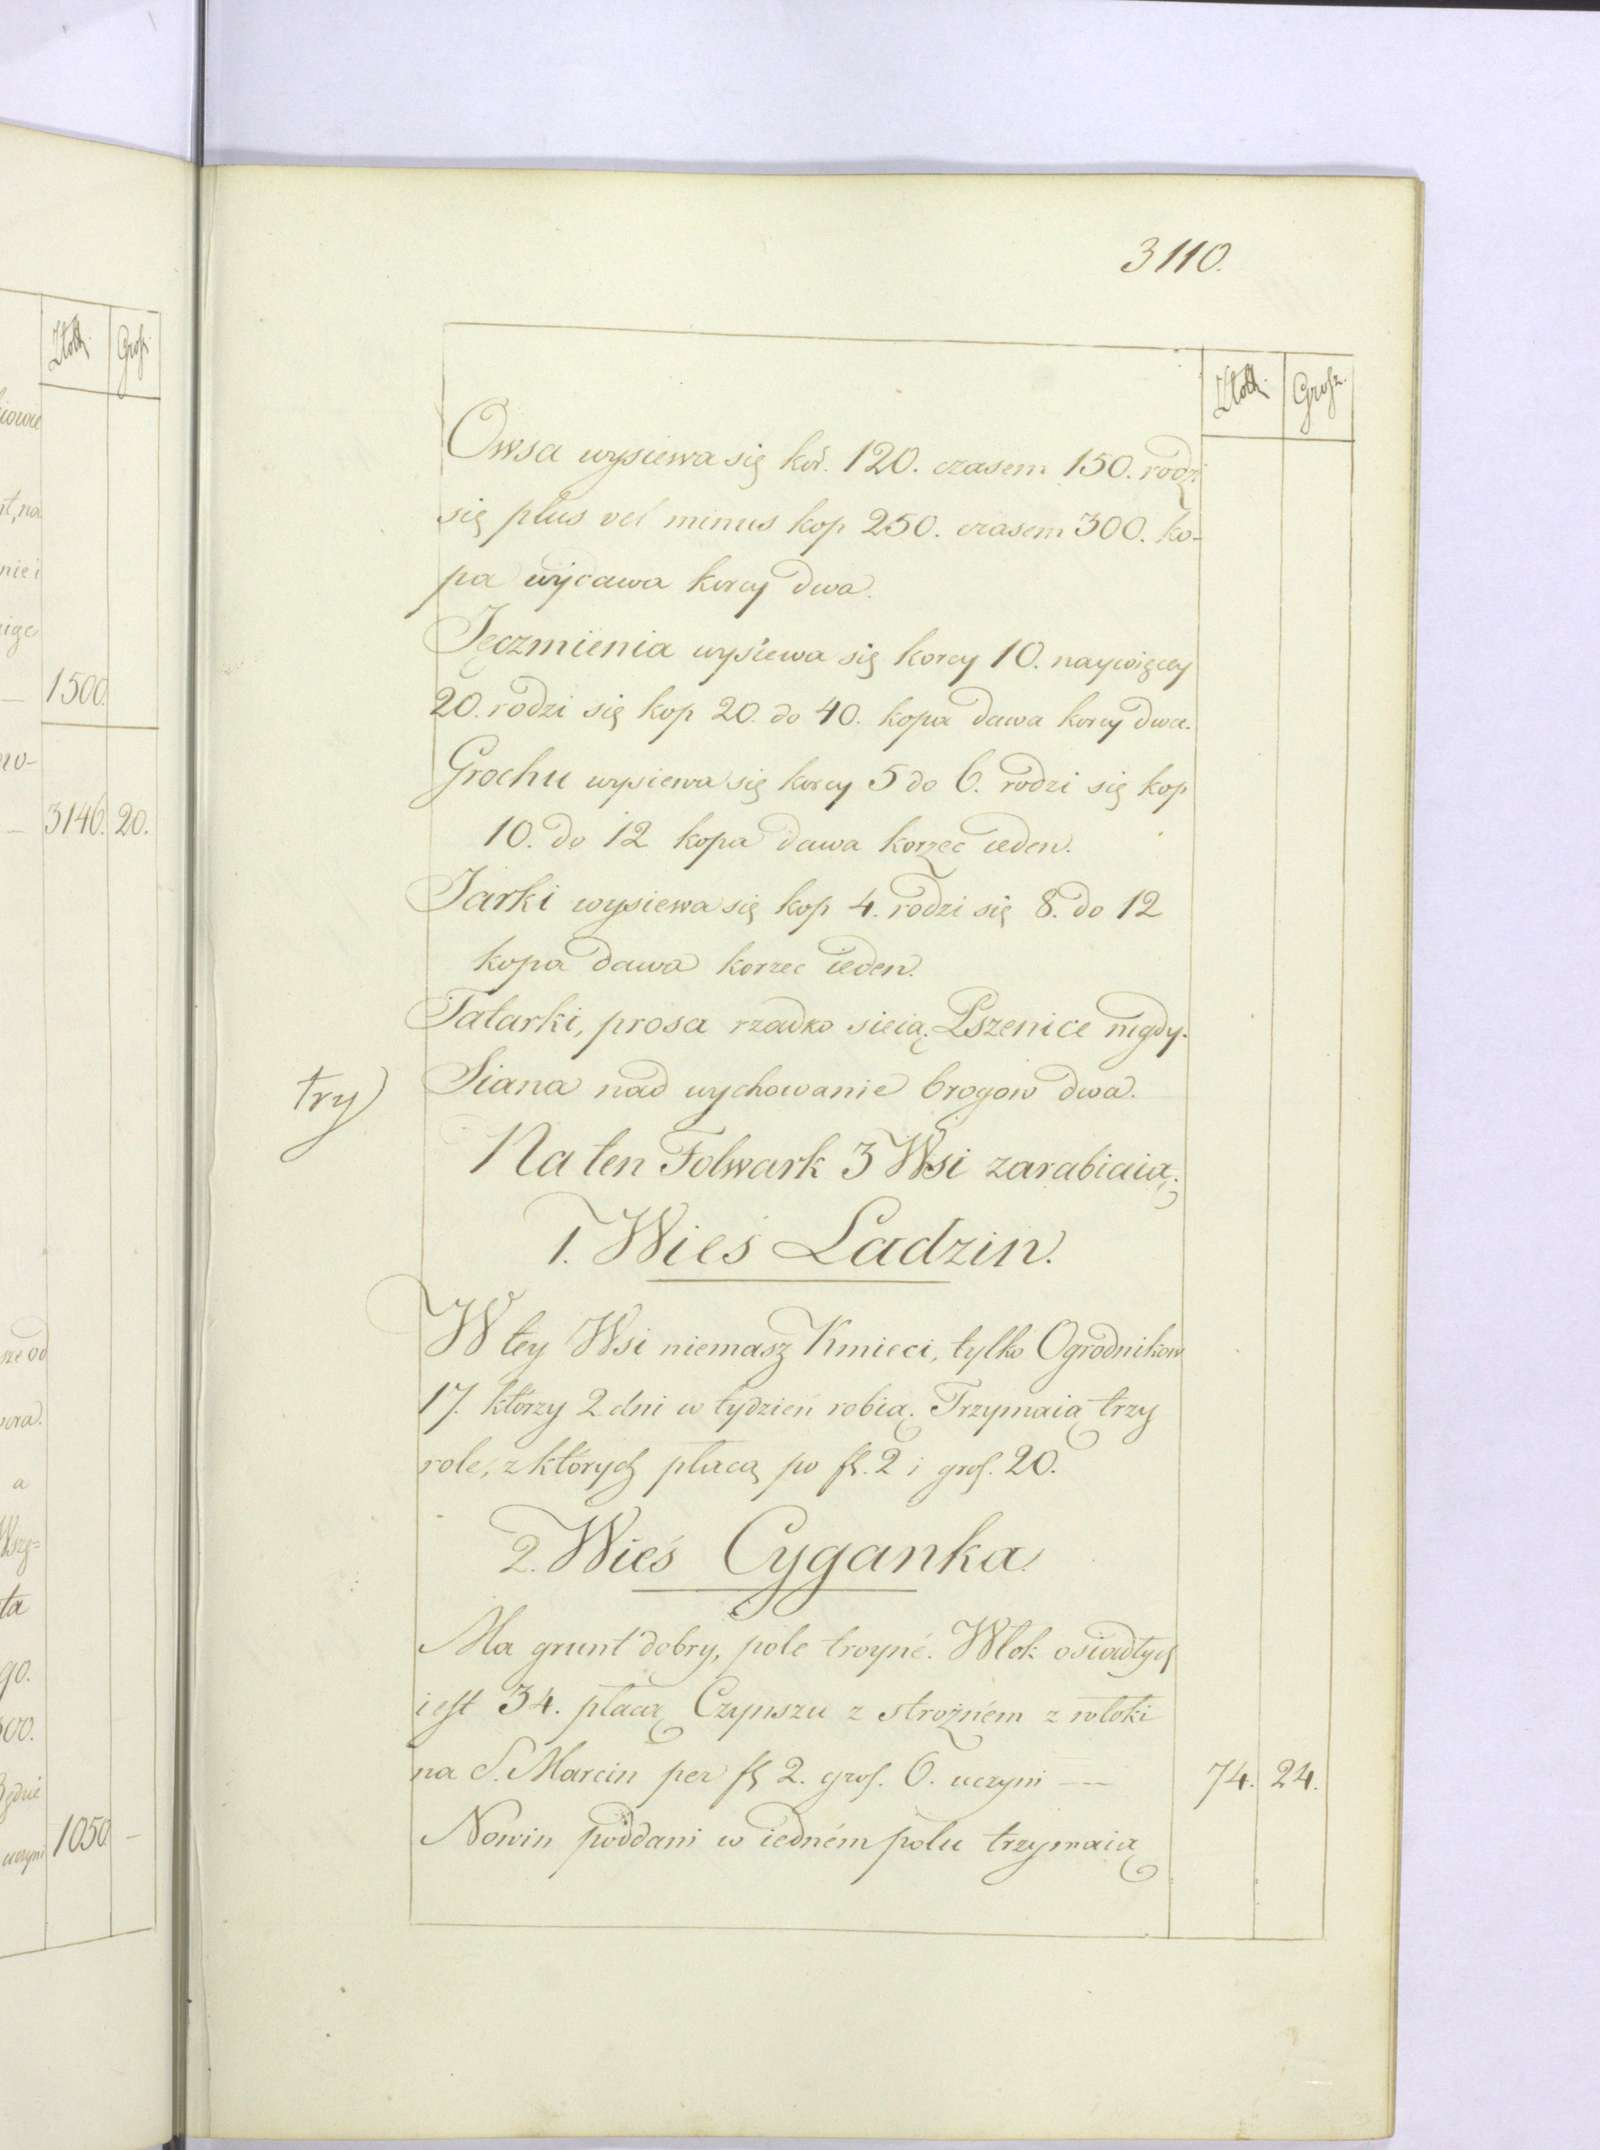 3110.
Złotl. Grosz.
Owsa wysiewa się kor. 120. czasem 150. rodzi
się plus vel minus kop 250. czasem 300. ko-
pa wydawa korcy dwa.
Jęczmienia wysiewa się korcy 10. naywięcey
20. rodzi się kop 20. do 40. kopa dawa korcy dwa.
Grochu wysiewa się korcy 5 do 6. rodzi się kop
10. do 12 kopa dawa korzec ieden.
Jarki wysiewa się kop 4. rodzi się 8. do 12
kopa dawa korzec ieden.
Tatarki, prosa rzadko sieią. Pszenice nigdy.
try) Siana nad wychowanie brogow dwa.
Na ten Folwark 3 Wsi zarabiaią.
1. Wieś Ladzin.
W tey Wsi niemasz Kmieci, tylko Ogrodnikow
17. którzy 2 dni w tydzień robią. Trzymaią trzy
role, z których płacą po fl. 2 i gros. 20.
2. Wieś Cyganka.
Ma grunt dobry, pole troyné. Włok osiadłych
iest 34. płacą Czynszu z stróżném z włoki
na S. Marcin per fl 2. gros. 6. uczyni — 74. 24.
Nowin poddani w iedném polu trzymaią
Złotl. Grosz.
1500.
3146. 20.
1050 —